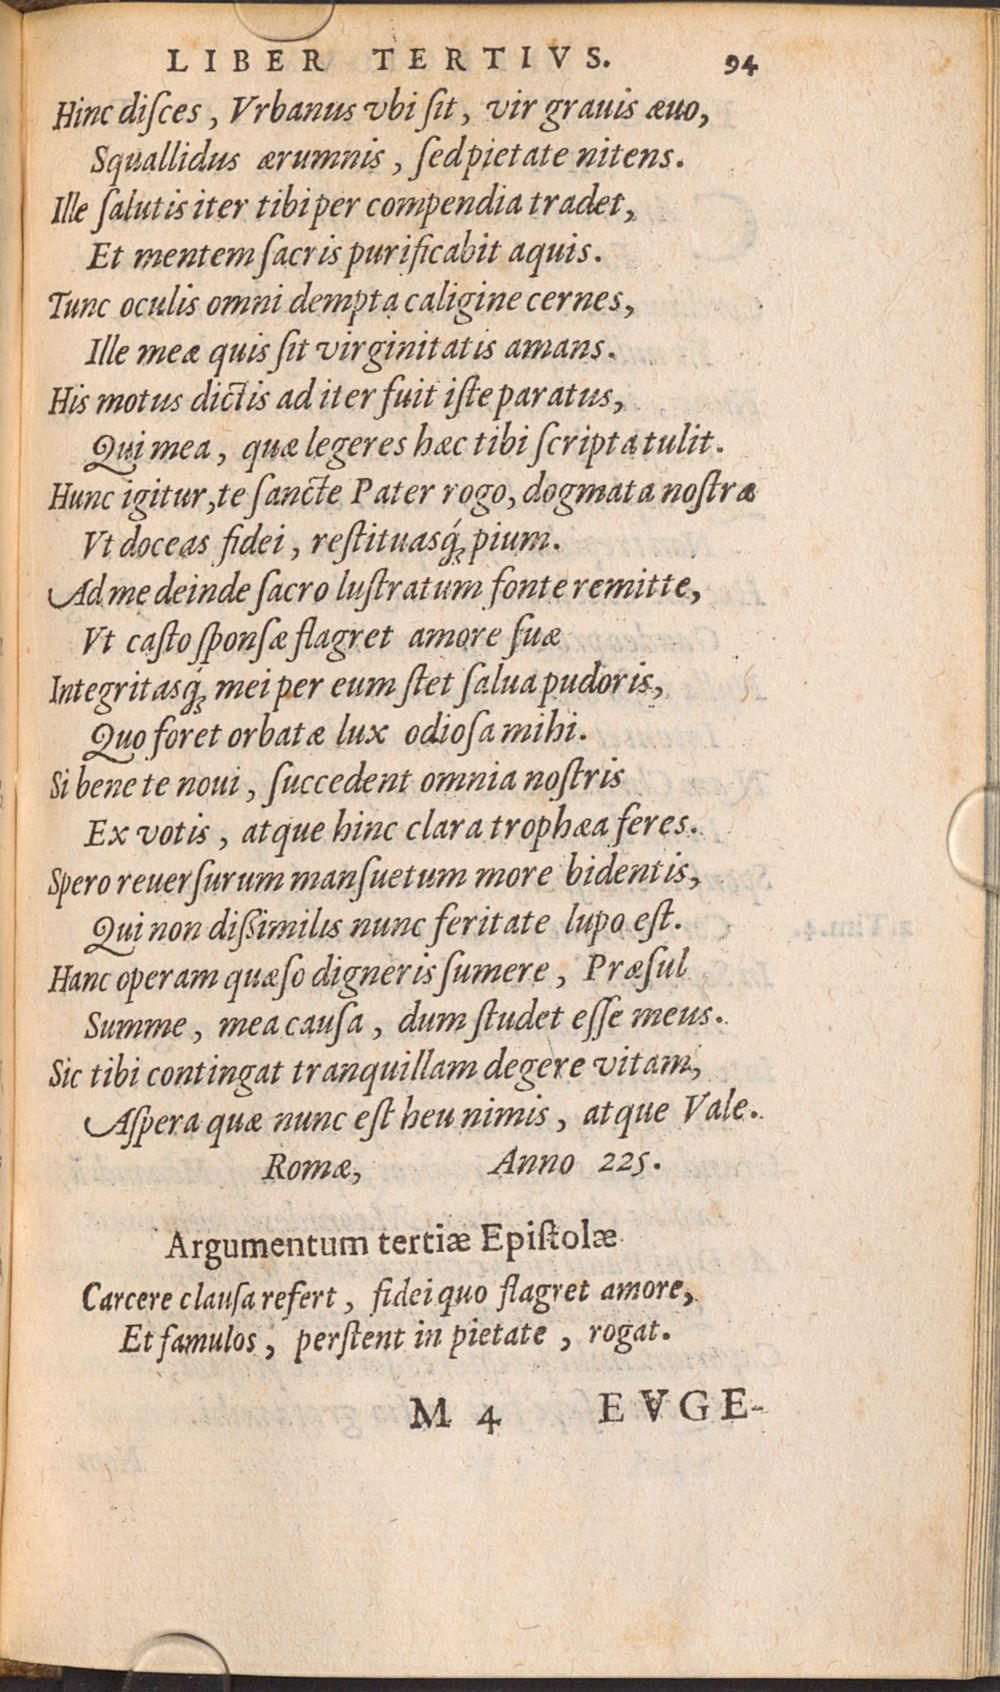 LIBER TERTIVS. 94
Hinc diſces, Vrbanus vbi ſit, vir grauis æuo,
Squallidus ærumnis, ſed pietate nitens.
Ille ſalutis iter tibi per compendia tradet,
Et mentem ſacris purificabit aquis.
Tunc oculis omni dempta caligine cernes,
Ille meæ quis ſit virginitatis amans.
His motus dictis ad iter fuit iſte paratus,
Qui mea, quæ legeres hæc tibi ſcripta tulit.
Hunc igitur, te ſancte Pater rogo, dogmata noſtræ
Vt doceas fidei, reſtituasq́ꝫ pium.
Ad me deinde ſacro luſtratum fonte remitte,
Vt caſto ſponſæ flagret amore ſuæ
Integritasq́ꝫ mei per eum ſtet ſalua pudoris,
Quo foret orbatæ lux odioſa mihi.
Si bene te noui, ſuccedent omnia noſtris
Ex votis, atque hinc clara trophæa feres.
Spero reuerſurum manſuetum more bidentis,
Qui non diſsimilis nunc feritate lupo eſt.
Hanc operam quæſo digneris ſumere, Præſul
Summe, mea cauſa, dum ſtudet eſſe meus.
Sic tibi contingat tranquillam degere vitam,
Aſpera quæ nunc eſt heu nimis, atque Vale.
Romæ, Anno 225.
Argumentum tertiæ Epiſtolæ
Carcere clauſa refert, fidei quo flagret amore,
Et famulos, perſtent in pietate, rogat.
M 4 EVGE-